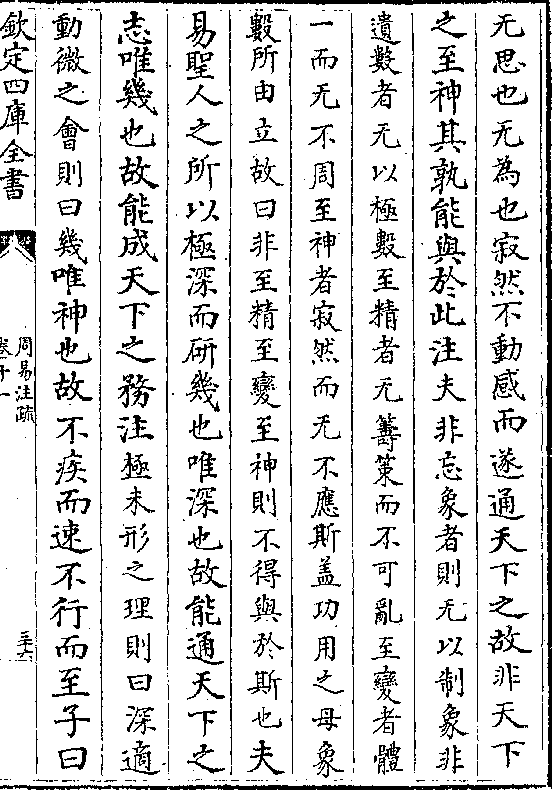 无思也无為也寂然不動感而遂通天下之故非天下
之至神其孰能與於此注夫非忘象者則无以制象非
遺數者无以極數至精者无籌策而不可亂至變者體
一而无不周至神者寂然而无不應斯盖功用之母象
數所由立故曰非至精至變至神則不得與於斯也夫
易聖人之所以極深而研幾也唯深也故能通天下之
志唯幾也故能成天下之務注極未形之理則曰深適
動微之會則曰幾唯神也故不疾而速不行而至子曰
欽定四庫全書
周易注疏
卷十一
三十六